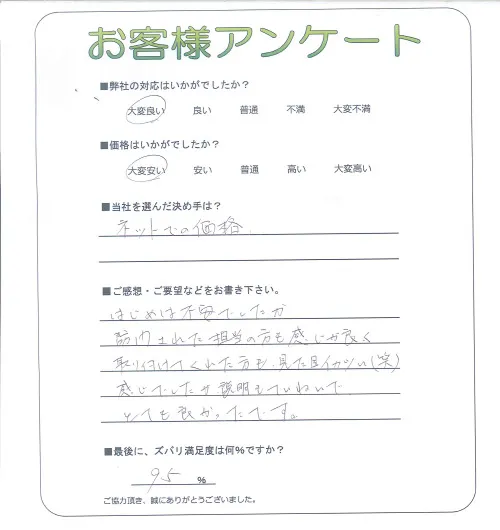 お客様アンケート
■弊社の対応はいかがでしたか？
大変良い 良い 普通 不満 大変不満
■価格はいかがでしたか？
大変安い 安い 普通 高い 大変高い
■当社を選んだ決め手は？
ネットでの価格
■ご感想・ご要望などをお書き下さい。
はじめは不安でしたが
訪問された担当の方も感じが良く
取り付けてくれた方も、見た目イカツい(笑)
感じでしたが説明もていねいで
とても良かったです。
■最後に、ズバリ満足度は何%ですか？
95 %
ご協力頂き、誠にありがとうございました。